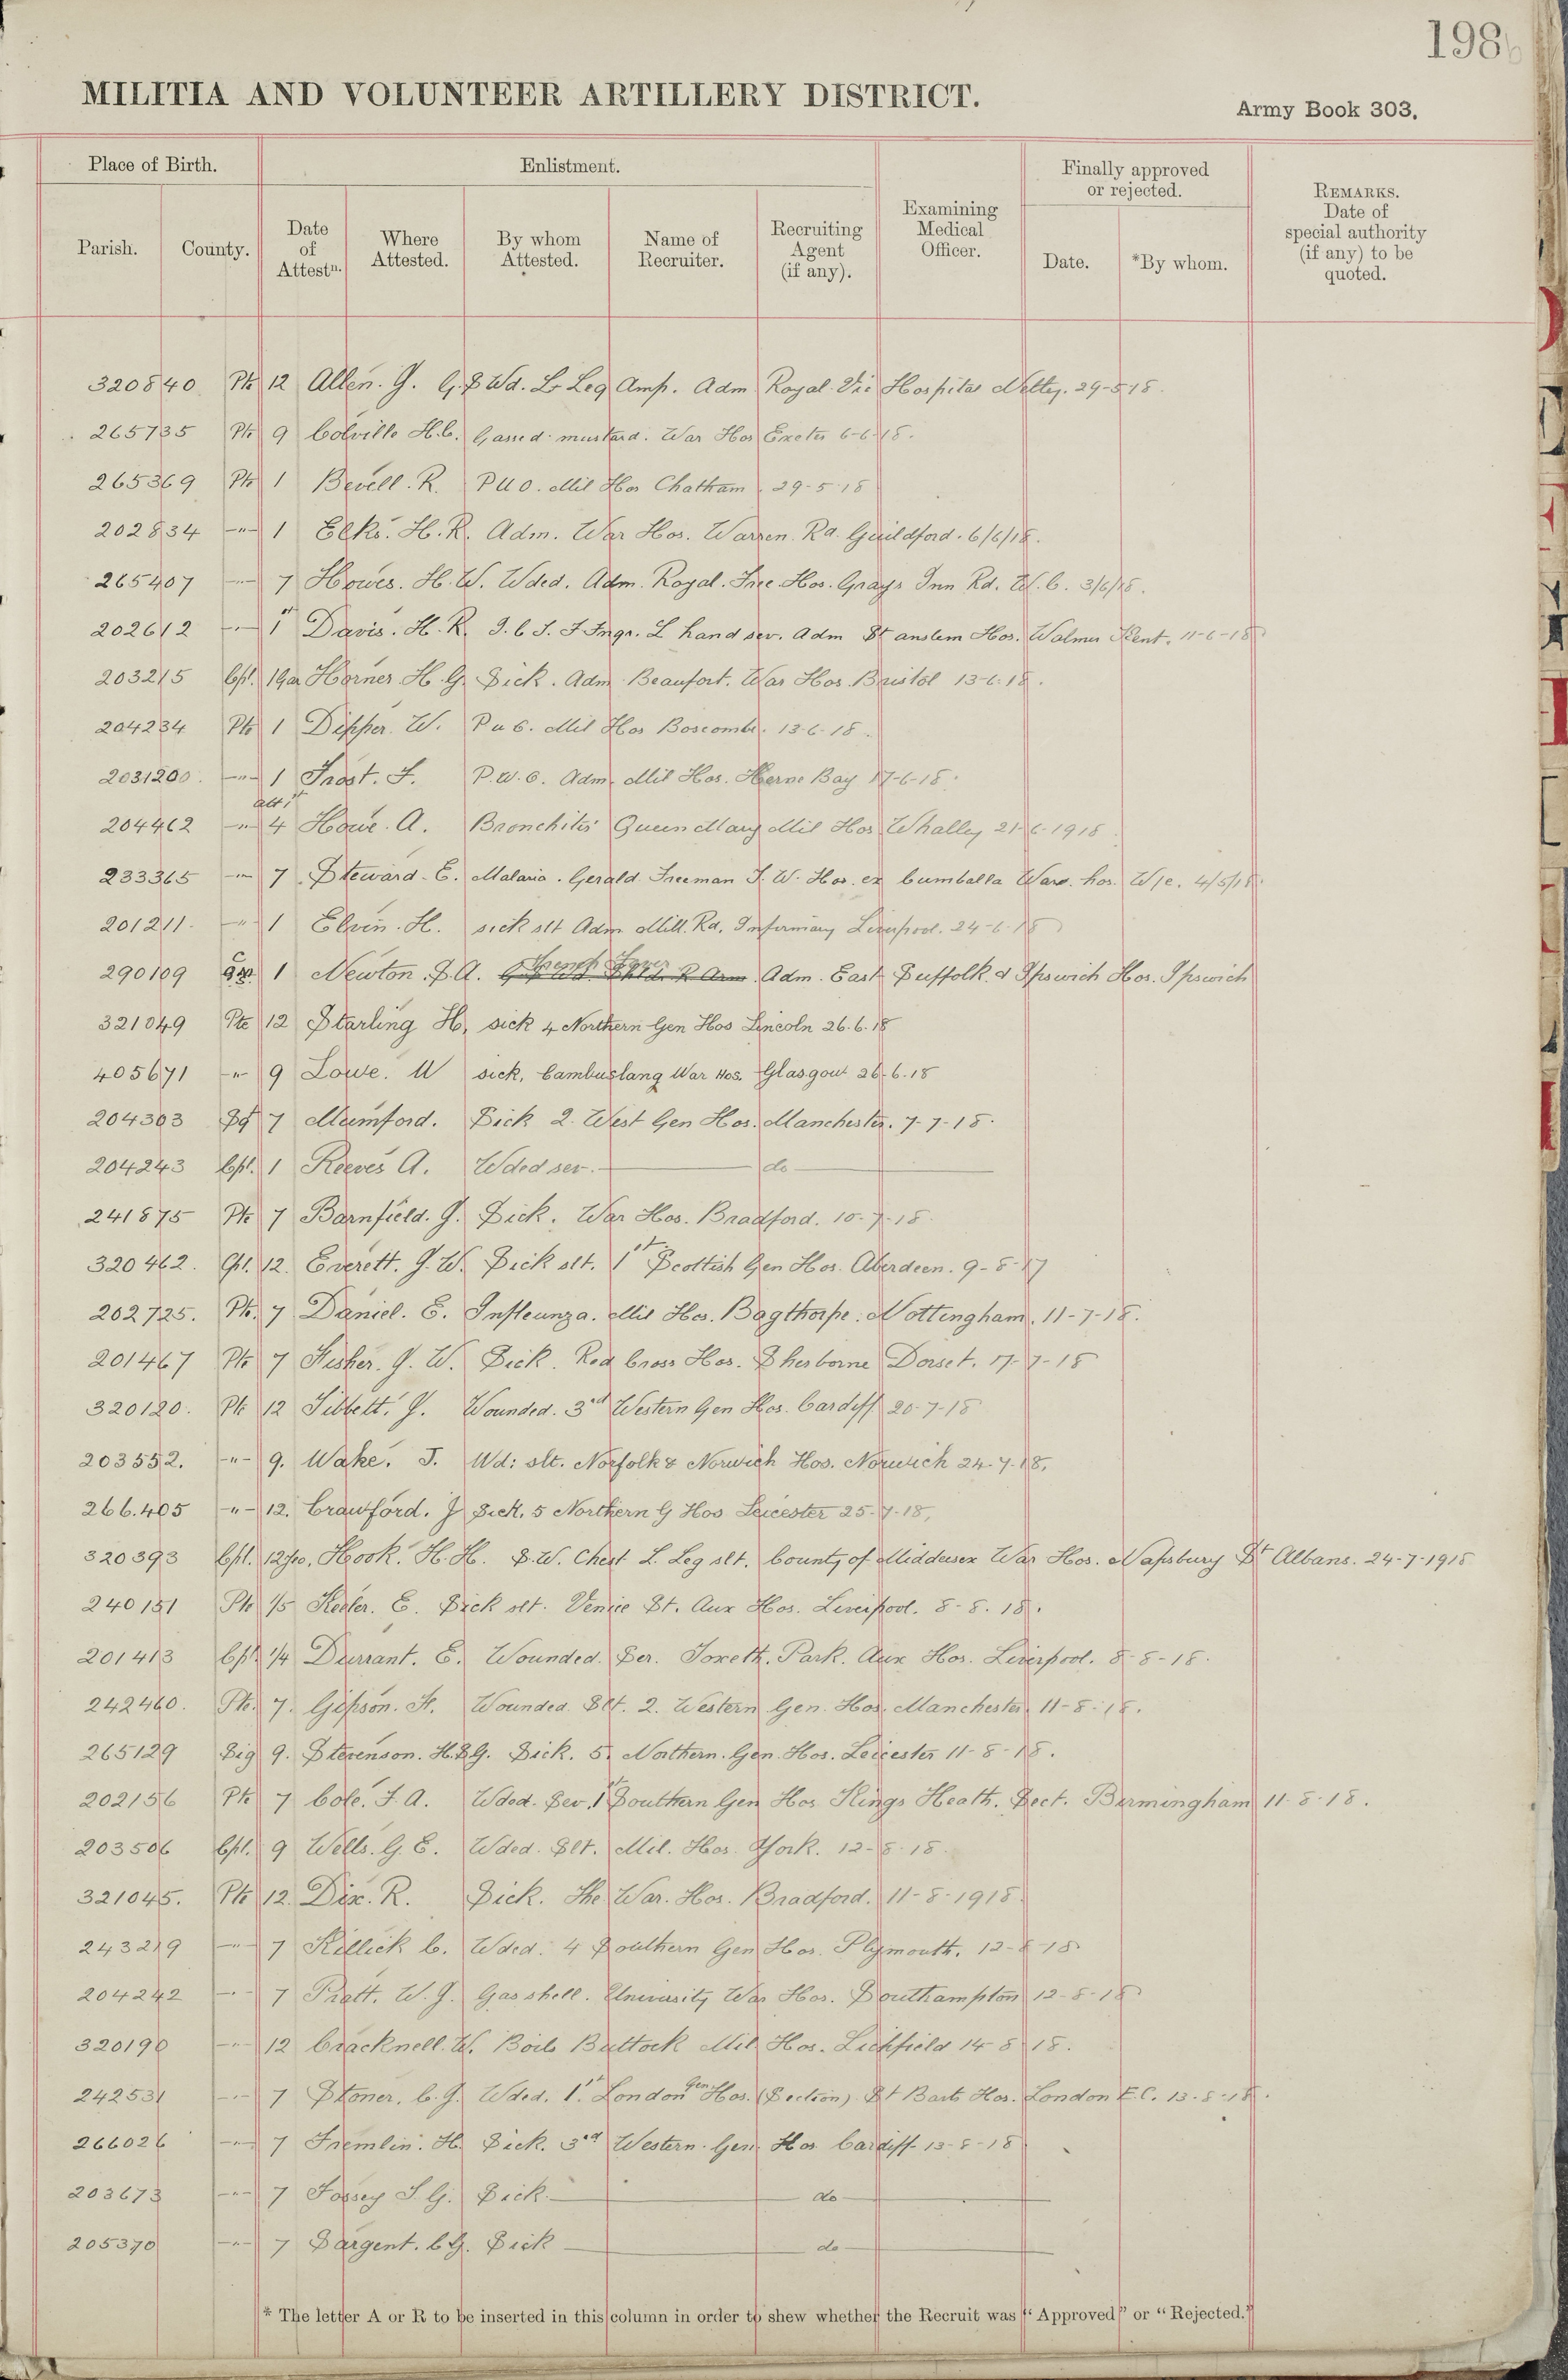 198
MILITIA AND VOLUNTEER ARTILLERY DISTRICT.
Army Book 303.
Place of Birth.
Enlistment.
Finally approved or rejected.
REMARKS. Date of special authority (if any) to be quoted.
Parish.
County.
Date of Attestn.
Where Attested.
By whom Attested.
Name of Recruiter.
Recruiting Agent (if any).
Examining Medical Officer.
Date.
*By whom.
320840 Pte 12 Allen. G. G.S Wd. Lr Leg Amp. Adm Royal Vic Hospital Netley. 29-5-18.
265735 Pte 9 Colville H.C. Gassed mustard. War Hos Exeter 6-6-18.
265369 Pte 1 Bevell. R. PUO. Mil Hos Chatham 29-5-18
202834 -"- 1 Elks. H.R. Adm. War Hos. Warren Rd. Guildford. 6/6/18.
265407 -"- 7 Howes. H.W. Wded. Adm. Royal. Free Hos. Grays Inn Rd. W.C. 3/6/18.
202612 -"- 1st Davis. H.R. I.C.T. F Ingr. L hand sev. Adm St anslem Hos. Walmer Kent. 11-6-18
203215 Cpl. 1Gar Horner H.G. Sick. Adm Beaufort. War Hos Bristol 13-6-18.
204234 Pte 1 Dipper. W. P u O. Mil Hos Boscombe. 13-6-18.
2031200. -"- 1 Frost. F. P.U.O. Adm. Mil Hos. Herne Bay 17-6-18.
204462 -"- att 1st 4 Howe. A. Bronchitis Queen Mary Mil Hos Whalley 21-6-1918
233365 -"- 7 Steward. E. Malaria. Gerald Freeman T. W. Hos. ex Cumballa War. hos. W/e. 4/5/18.
201211. -"- 1 Elvin. H. sick slt Adm Mill. Rd. Infirmary Liverpool. 24-6-18
290109 1 Newton. J.A. Trench Fever Adm. East Suffolk & Ipswich Hos. Ipswich
321049 Pte 12 Starling H, sick 4 Northern Gen Hos Lincoln 26.6.18
405671 -"- 9 Lowe. W sick, Cambuslang War Hos. Glasgow 26.6.18
204303 Sgt 7 Mumford. Sick 2. West Gen Hos. Manchester. 7-7-18.
204243 Cpl. 1 Reeves A. Wded sev. do
241875 Pte 7 Barnfield. G. Sick. War Hos. Bradford. 10-7-18.
320462. Cpl. 12. Everett. G.W. Sick slt. 1st Scottish Gen Hos. Aberdeen. 9-8-17
202725. Pte. 7 Daniel. E. Infleunza. Mil Hos. Bagthorpe. Nottingham. 11-7-18.
201467 Pte 7 Fisher. G.W. Sick. Red Cross Hos. Sherborne Dorset. 17-7-18
320120. Pte 12 Tibbett. G. Wounded. 3rd Western Gen Hos. Cardiff 20-7-18
203552. -"- 9. Wake. J. Wd: slt. Norfolk & Norwich Hos. Norwich 24-7-18.
266.405 -"- 12. Crawford. J Sick, 5 Northern G Hos Leicester 25-7-18,
320393 Cpl. 12Yeo. Hook. H.H. S.W. Chest L. Leg slt. County of Middlesex War Hos. Napsbury St Albans. 24-7-1918
240151 Pte 1/5 Keeler. E. Sick slt. Venice St. Aux Hos. Liverpool. 8-8. 18.
201413 Cpl 1/4 Durrant. E. Wounded. Ser. Toxeth. Park. Aux Hos. Liverpool. 8-8-18.
242460. Pte. 7. Gipson. A. Wounded. Slt. 2. Western Gen. Hos. Manchester 11-8-18.
265129 Sig 9. Stevenson. H.S.G. Sick. 5. Northern. Gen. Hos. Leicester 11-8-18.
202156 Pte 7 Cole. F.A. Wded. Sev. 1st Southern Gen Hos Kings Heath. Sect. Birmingham 11-8-18.
203506 Cpl. 9 Wells. G.E. Wded. Slt. Mil. Hos. York. 12-8-18.
321045. Pte 12. Dix. R. Sick. The War. Hos. Bradford. 11-8-1918.
243219 -"- 7 Killick C. Wded. 4 Southern Gen Hos. Plymouth. 12-8-18
204242 -"- 7 Pratt. W.G. Gas shell. University War Hos. Southampton 12-8-18
320190 -"- 12 Cracknell. W. Boils Buttock Mil Hos. Lichfield 14-8-18.
242531 -"- 7 Stoner. C.G. Wded. 1st London Gen Hos. (Section) St Barts Hos. London E.C. 13-8-18.
266026 -"- 7 Fremlin. H. Sick. 3rd Western. Gen Hos Cardiff 13-8-18
203673 -"- 7 Fossey S.G. Sick do
205370 -"- 7 Sargent. C.G. Sick do
* The letter A or R to be inserted in this column in order to shew whether the Recruit was "Approved" or "Rejected."